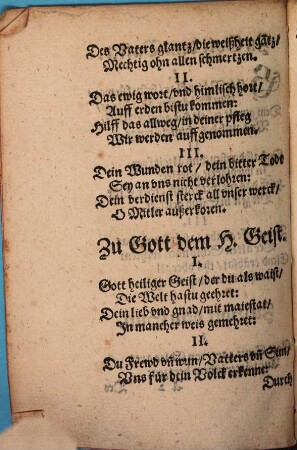 Des Vaters glantz/die weißheit gätz/
Mechtig ohn allen schmertzen.
II.
Das ewig wort/vnd himlisch hort/
Auff erden bistu kommen:
Hilff das allweg/in deiner pfleg
Wir werden auffgenommen.
III.
Dein Wunden rot/ dein bitter Todt
Sey an vns nicht verlohren:
Dein verdienst sterck all vnser werck/
O Mitler außerkoren.
Zu Gott dem H. Geist.
I.
Gott heiliger Geist/der du als waist/
Die Welt hastu geehret:
Dein lieb vnd gnad/mit maiestat/
In mancher weis gemehret:
II.
Du Frewd vñ wun/Vatters vñ Sun/
Vns für dein Volck erkenne:
Durch